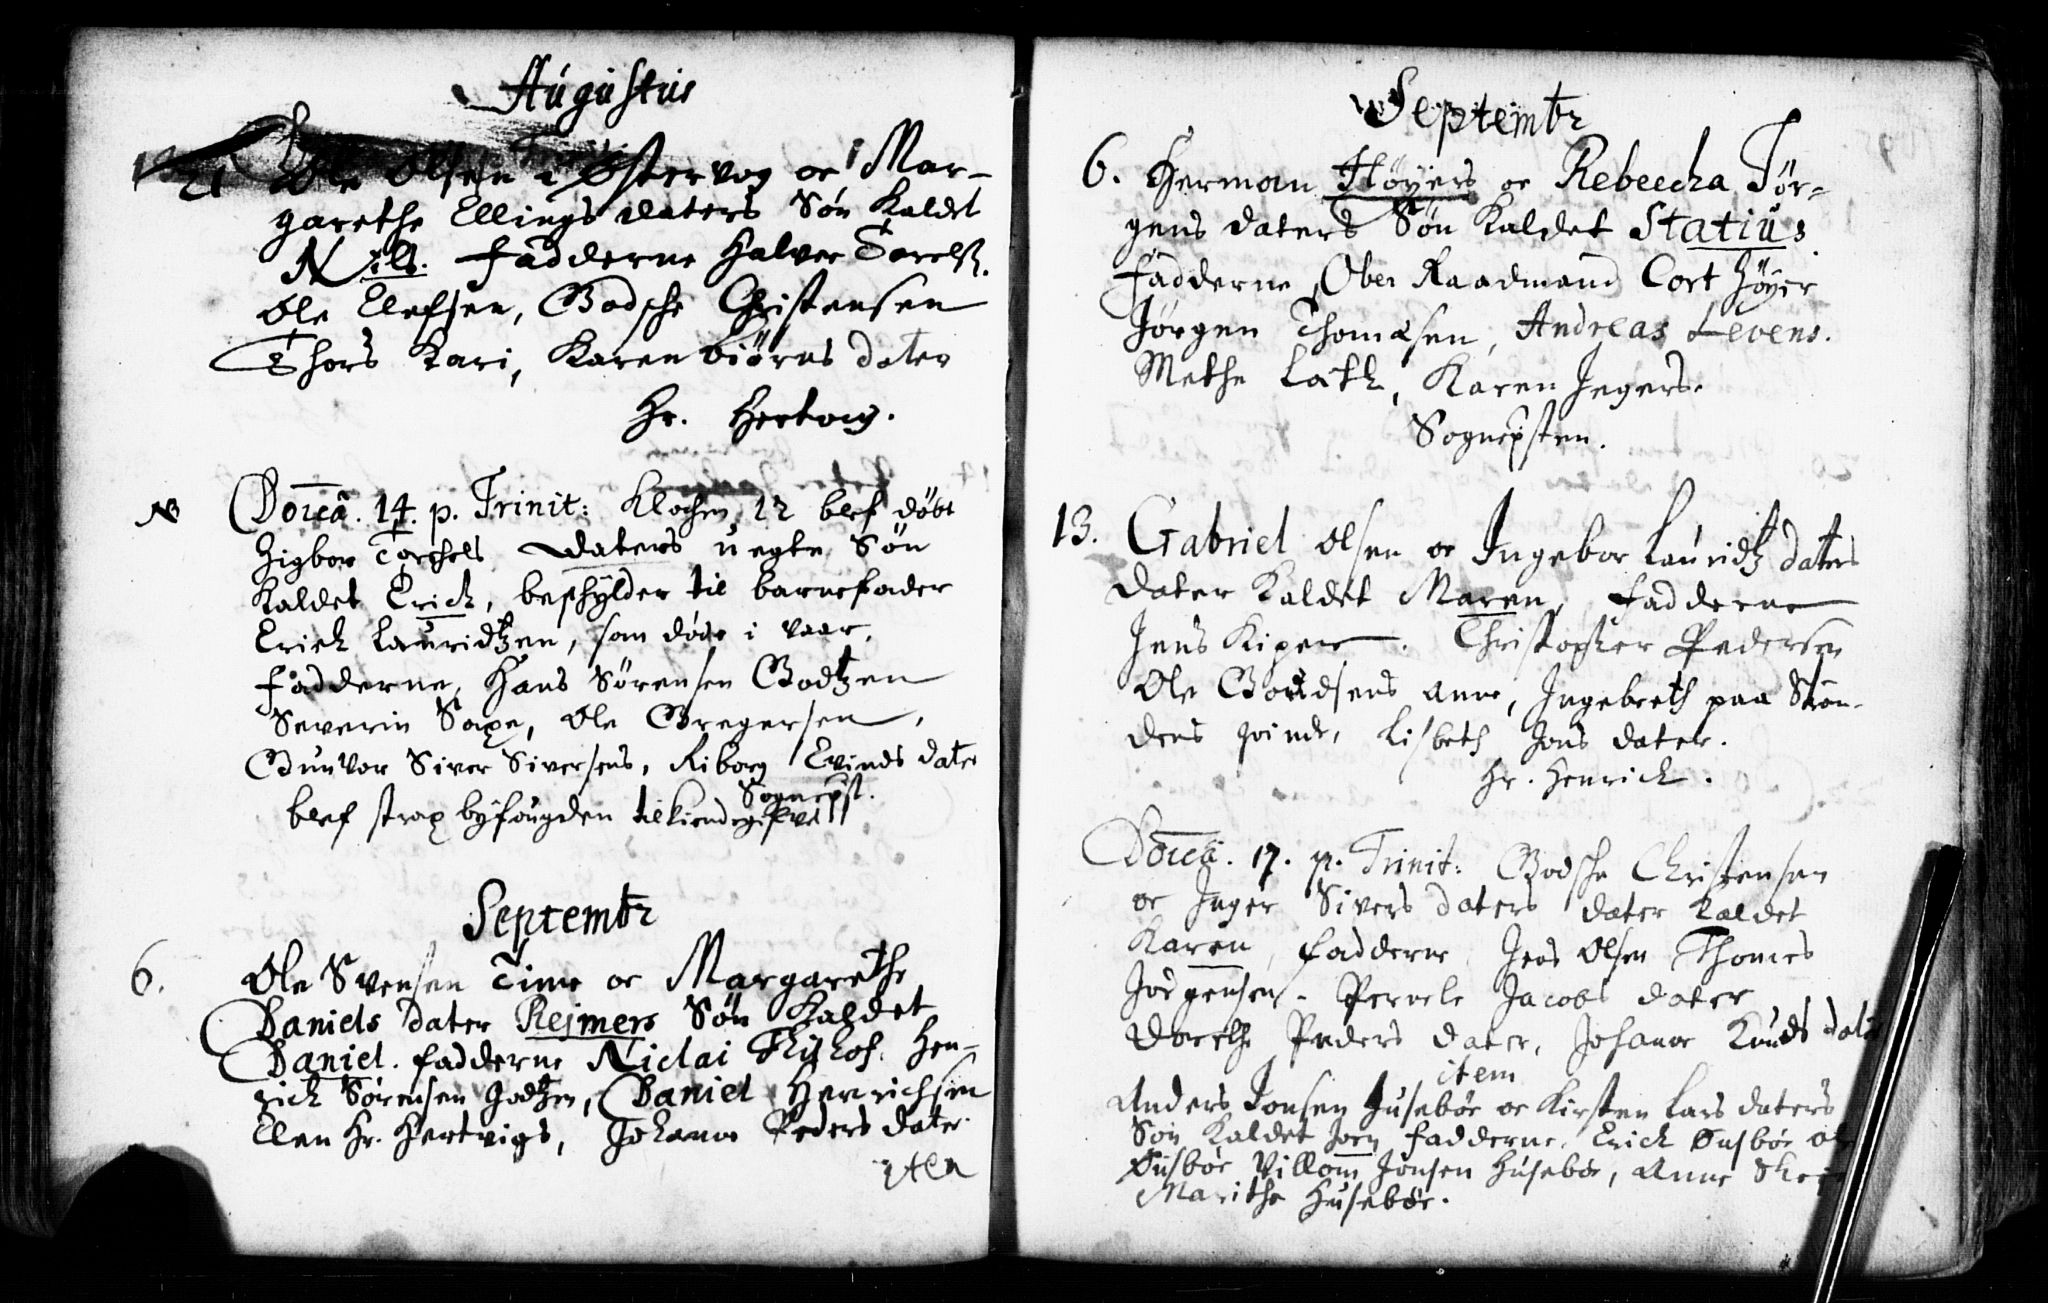 Augustus
21 Ole Olsen i Østervog oc Mar-
garethe Ellings daters Søn Kaldet
Nils. Fadderne Halvor Torelß.
Ole Elefsen, Godsche Christensen
Thors Kari, Karen biørns dater
Hr. Hertvig.
NB Doicâ. 14. p. Trinit: Klochen 12 blef døbt
Zigbor Torchels daters uegte Søn
Kaldet Erich, beschylder til barnefader
Erich Lauridtzen, som døde i vaar.
Fadderne, Hans Sørensen Godtzen
Severin Saxe, Ole Gregersen,
Gunvor Siver Siversens, Riborg Evinds dater
Sognepst.
blef strax byfougden tilkiendegifved
Septembr
6. Ole Svensen Time oc Margarethe
Daniels dater Rejmers Søn Kaldet
Daniel. Fadderne Niclai Hen-
rich Sørensen Godtzen, Daniel Henrichsen
Elen Hr. Hertvigs, Johanne Peders dater.
item
Septembr
6. Herman Høyers oc Rebeecka Jør-
gens daters Søn Kaldet Statius
Fadderne, Ober Raadmand Cort Høyer
Jørgen Thomæsen, Andreas Levens.
Methe Lath, Karen Jegers.
Sognepsten.
13. Gabriel Olsen oc Ingebor Lauridtz daters
dater Kaldet Maren, Fadderne
Jens Kiper. Christopher Pedersen
Ole Gordsens Anne, Ingebreth paa Stran-
dens qvinde, Lisbeth Jons dater.
Hr. Henrich.
Doicâ. 17. p. Trinit: Godsche Christensen
oc Inger Sivers daters dater Kaldet
Karen, Fadderne Jens Olsen Thomes
Jørgensen. Pernele Jacobs dater
Dorethe Peders dater, Johanne Knuds dater
item
Anders Jonsen Husebøe oc Kirsten Lars daters
Søn Kaldet Joen Fadderne, Erich Husbøe Ole
Husbøe Villom Jonsen Husebøe, Anne
Marithe Husebøe.